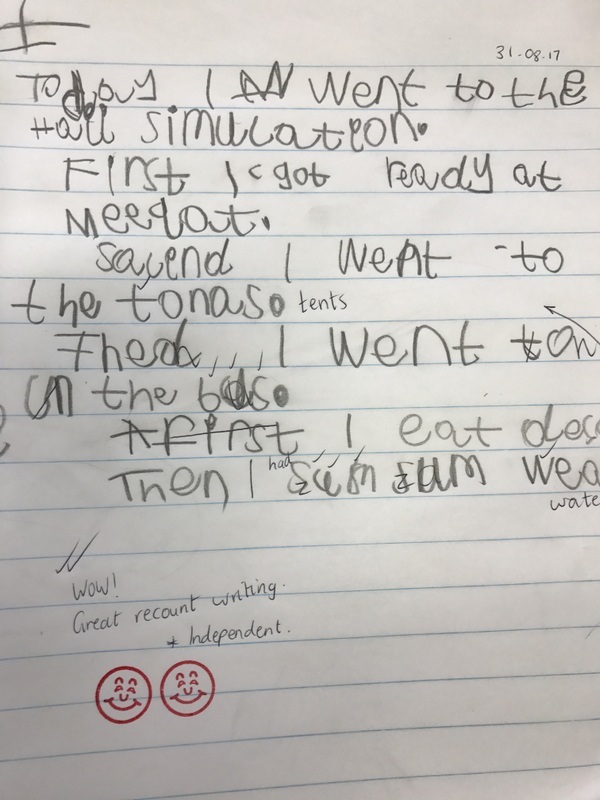 31-08-17
Today I went to the
Hall simulateon.
First I got ready at
Meeqat.
Sacend I went to
the tonaso tents
Thed I went on
in the
First I eat des
Then I had sum wea
wate
Wow!
Great recount writing.
* Independent.